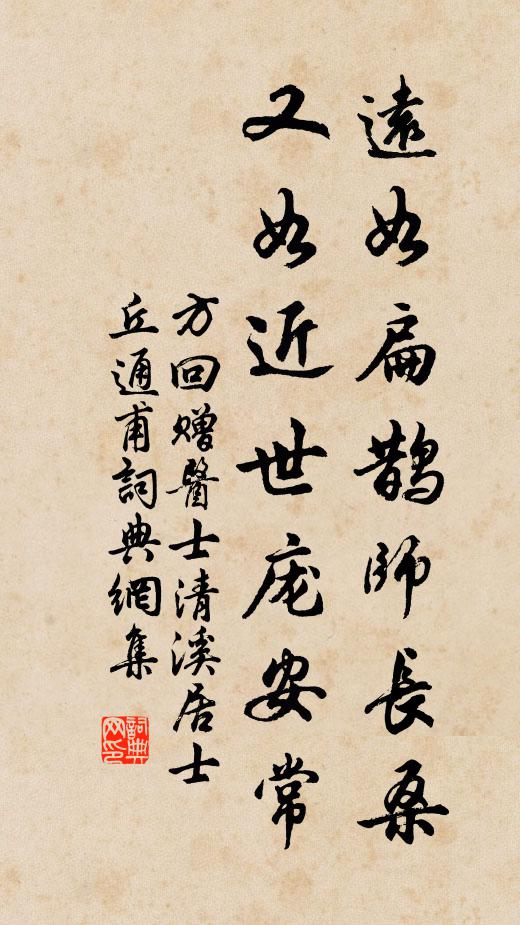 遠如扁鵲師長桑
又如近世庞安常
方回赠醫士清溪居士
丘通甫詞典網集
詞典網印